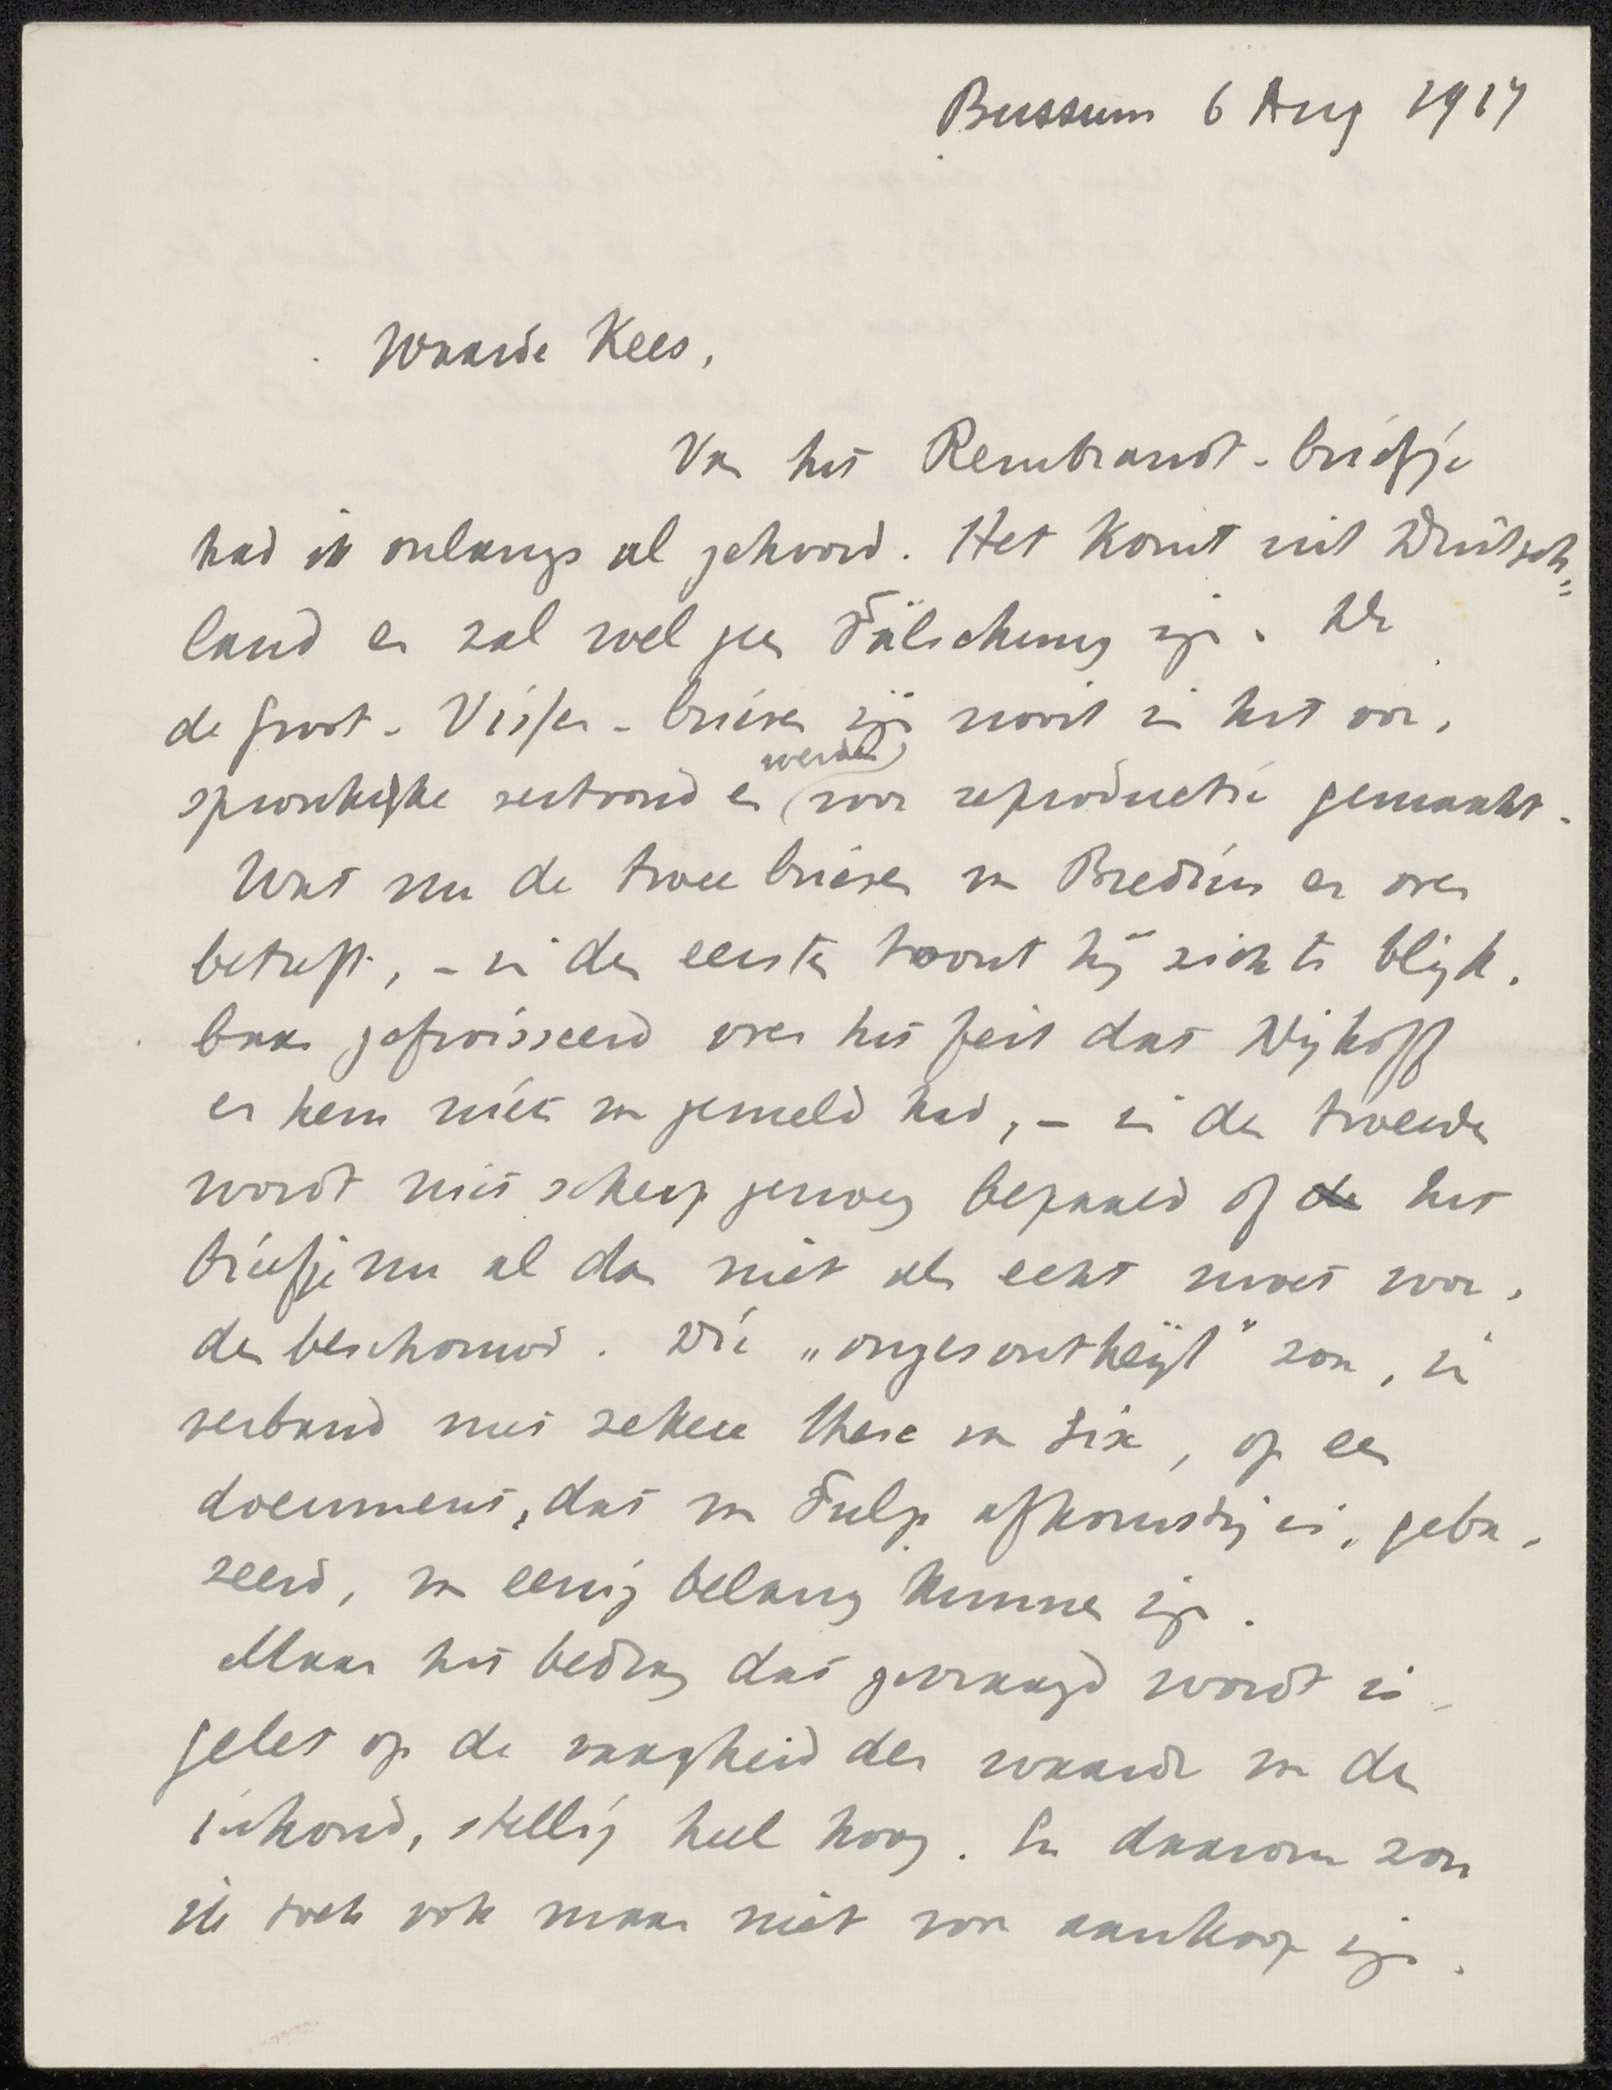 Bussum 6 Aug 1917
Waarde Kees,
Van het Rembrandt-briefje
had ik onlangs al gehoord. Het komt uit Deutsch=
land en zal wel geen Fälschung zijn. De
de Groot-Visser-brieven zijn nooit in het oor-
spronkelijke vertoond en werden voor reproductie gemaakt.
Wat nu de twee brieven van Bredius er over
betreft, – in den eersten toont hij zich te blijk-
baar gefroisseerd over het feit dat Nijhoff
er hem niets van gemeld had, – in den tweeden
wordt niet scherp genoeg bepaald of de het
briefje nu al dan niet als echt moet wor-
den beschouwd. Die „ongesontheijt" zou, in
verband met zekere these van Six, op een
document, dat van Tulp afkomstig is, geba-
seerd, van eenig belang kunnen zijn.
Maar het bedrag dat gevraagd wordt is –
gelet op de vaagheid der waarde van den
inhoud, stellig heel hoog. En daarom zou
ik toch ook maar niet voor aankoop zijn.